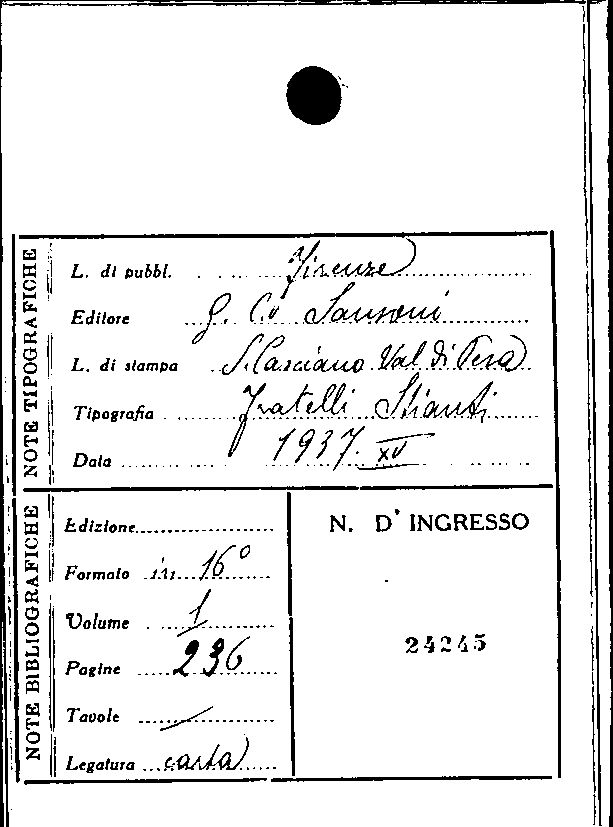 NOTE TIPOGRAFICHE
L. di pubbl. Firenze
Editore G. C. Sansoni
L. di stampa S. Casciano Val di Pesa
Tipografia Fratelli Stianti
Data 1937. XV
NOTE BIBLIOGRAFICHE
Edizione
Formato in 16°
Volume 1
Pagine 236
Tavole /
Legatura carta
N. D' INGRESSO
24245